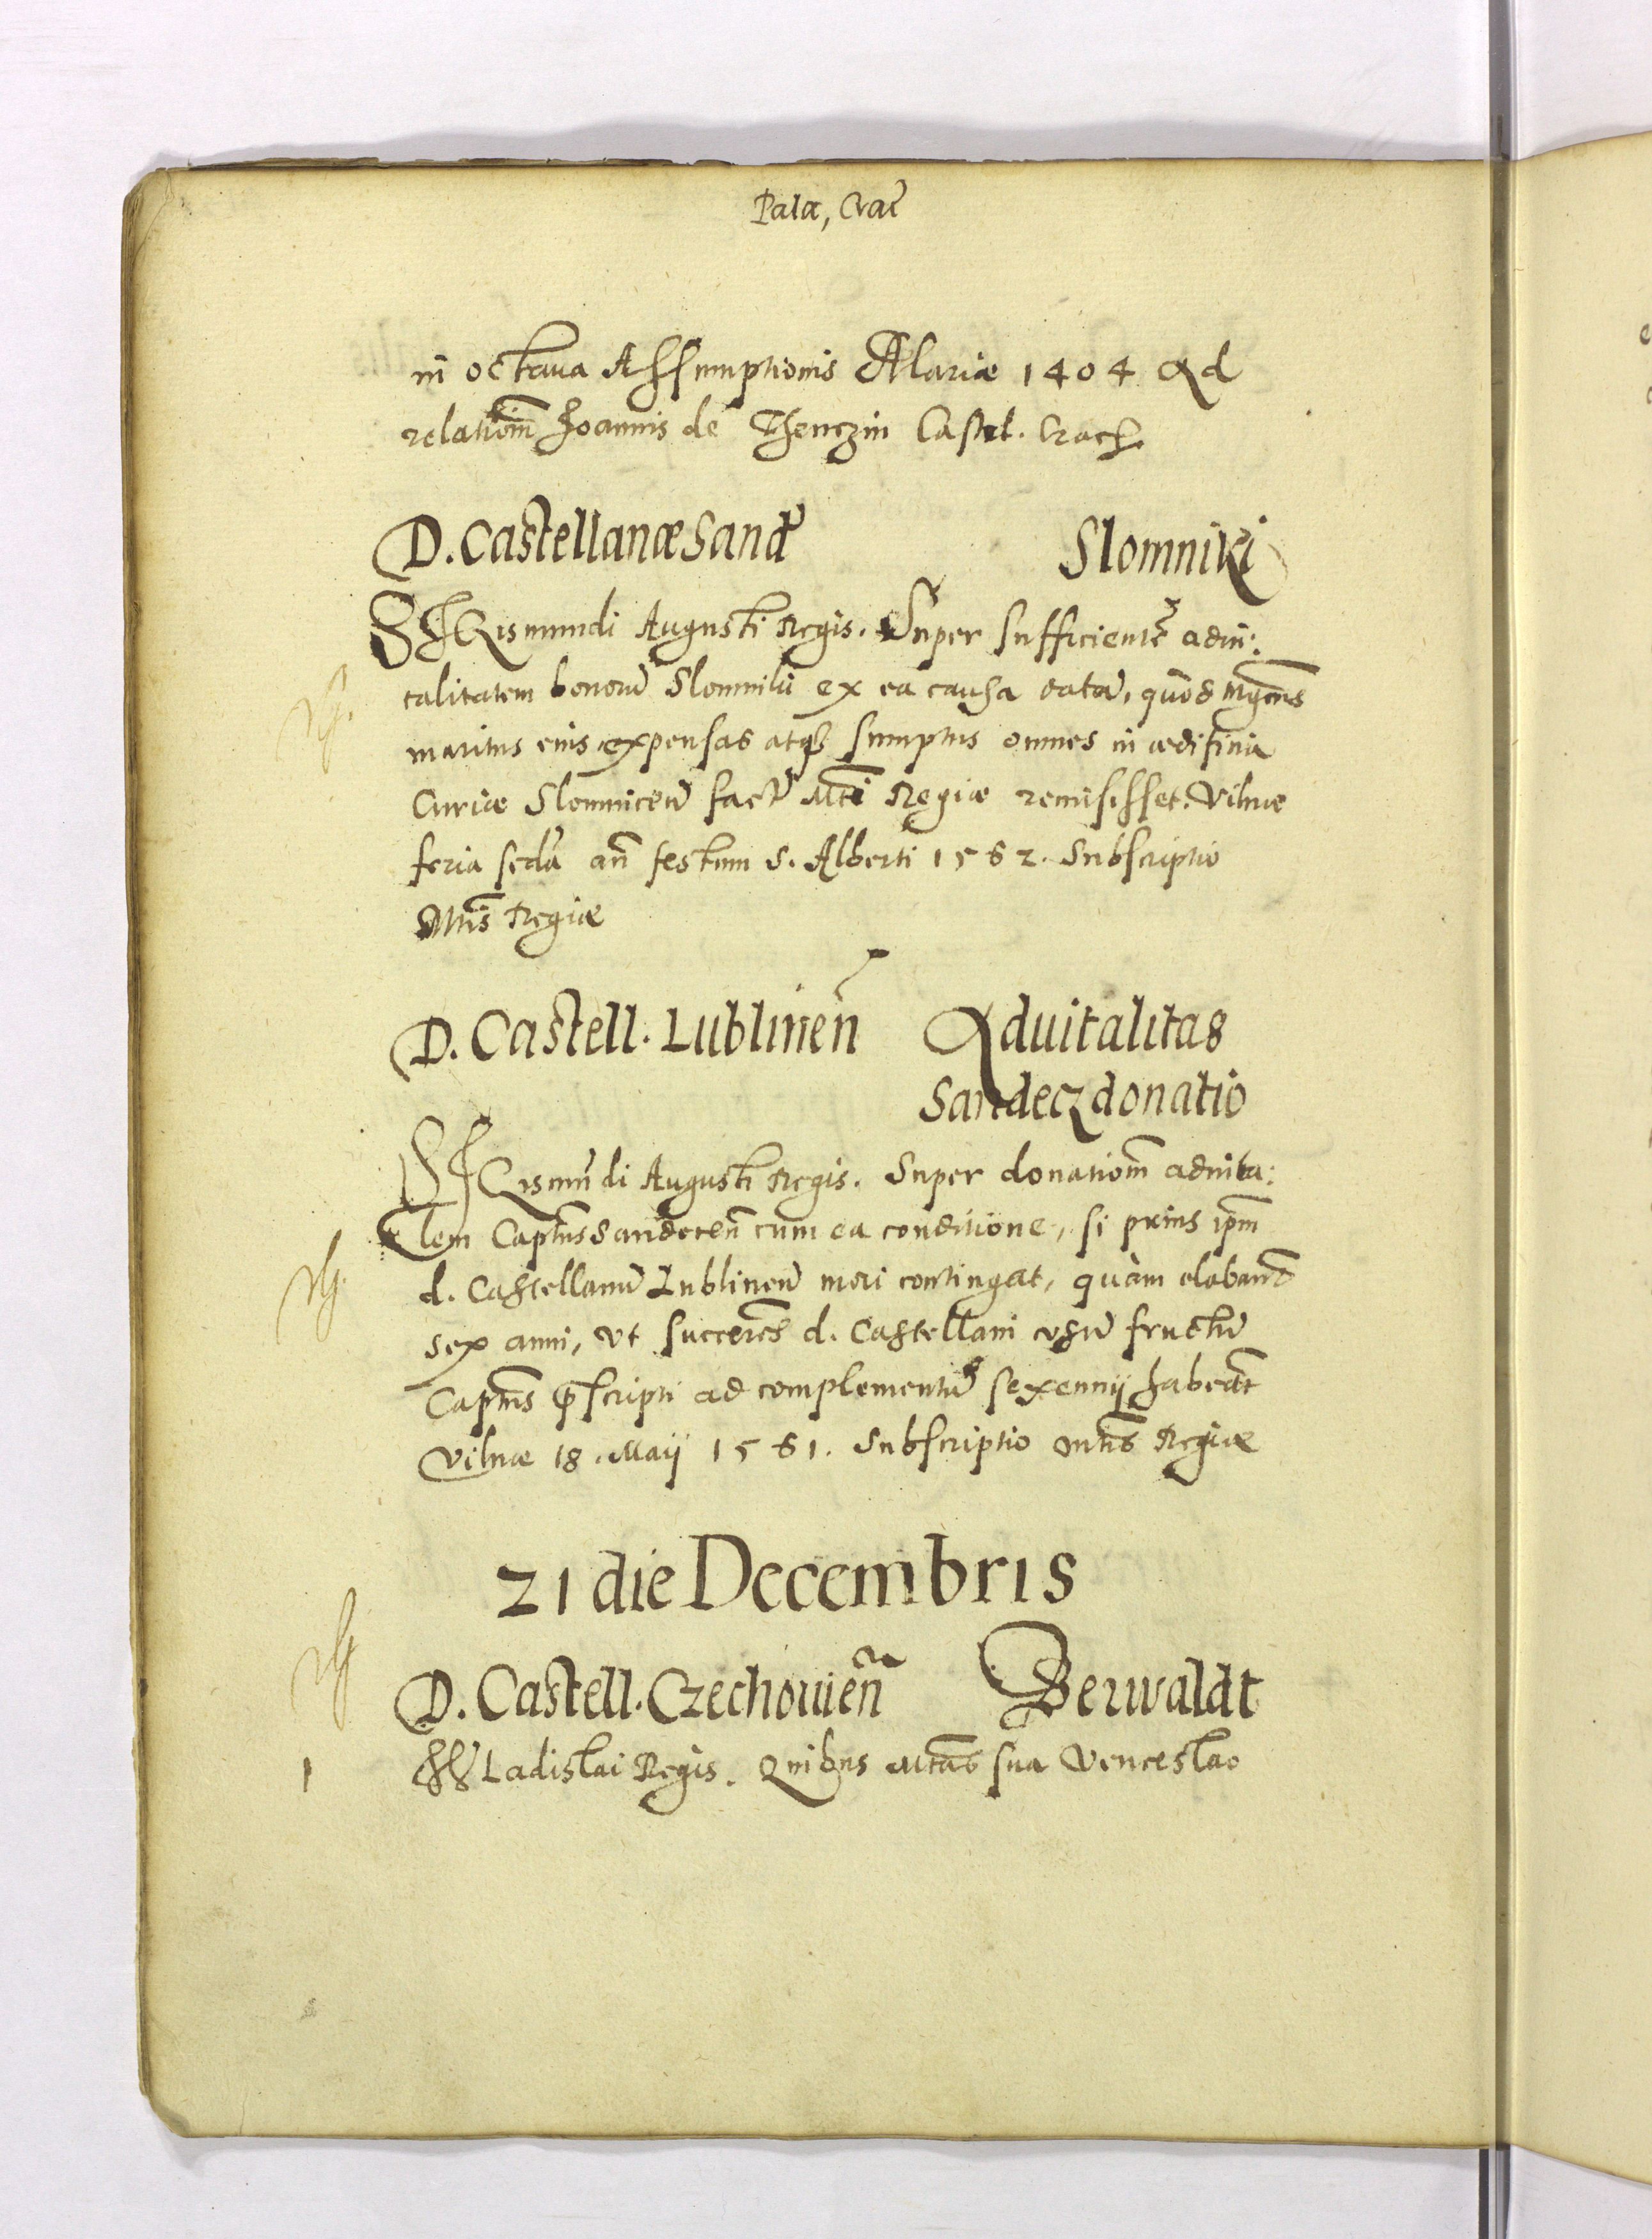 Palæ, Crac̃
in octava Assumptionis Mariæ 1404 Ad
relationẽ Joannis de Thenczin Castel. Crach.
D. Castellanæ Sand̃ Slomniki
SIGismundi Augusti Regis. Super sufficientẽ advi:
talitatem bonorũ Slomniki ex ea causa datã, quòd Mgcũs
maritus eius expensas atq3 sumptus omnes in ædificia
Curiæ Slomniceñ factũ Mti Regiæ remisisset. Vilnæ
feria secda añ festum S. Alberti 1562. Subscriptio
Mtis Regiæ
D. Castell. Lublineñ Advitalitas
Sandecz donatio
SIGismũdi Augusti Regis. Super donationẽ advita:
lem Captus Sandeceñ cum ea conditione, si prius ipm
d. Castellanũ Lublineñ mori contingat, quàm elabant̃
sex anni, vt succeres d. Castellani vsũ fructũ
Captus p̃scripti ad complementũ sexennij habeãt
Vilnæ 18. Maij 1561. Subscriptio Mtis Regiæ
21 die Decembris
D. Castell. Czechovieñ Berwaldt
1 WLadislai Regis. Quibus Mtas sua Venceslao